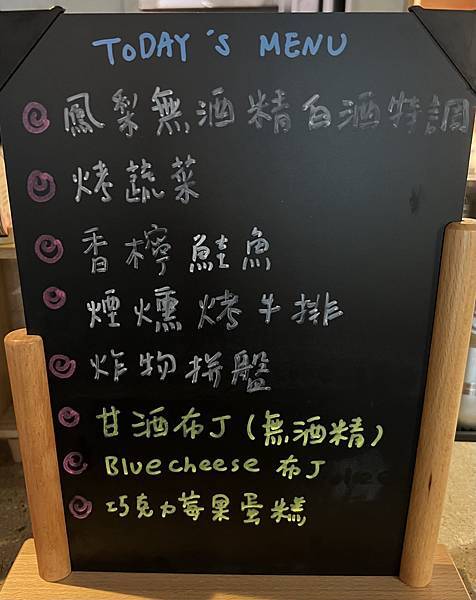 TODAY'S MENU
鳳梨無酒精白酒特調
烤蔬菜
香檸鮭魚
煙燻烤牛排
炸物拼盤
甘酒布丁(無酒精)
Bluecheese 布丁
巧克力莓果蛋糕